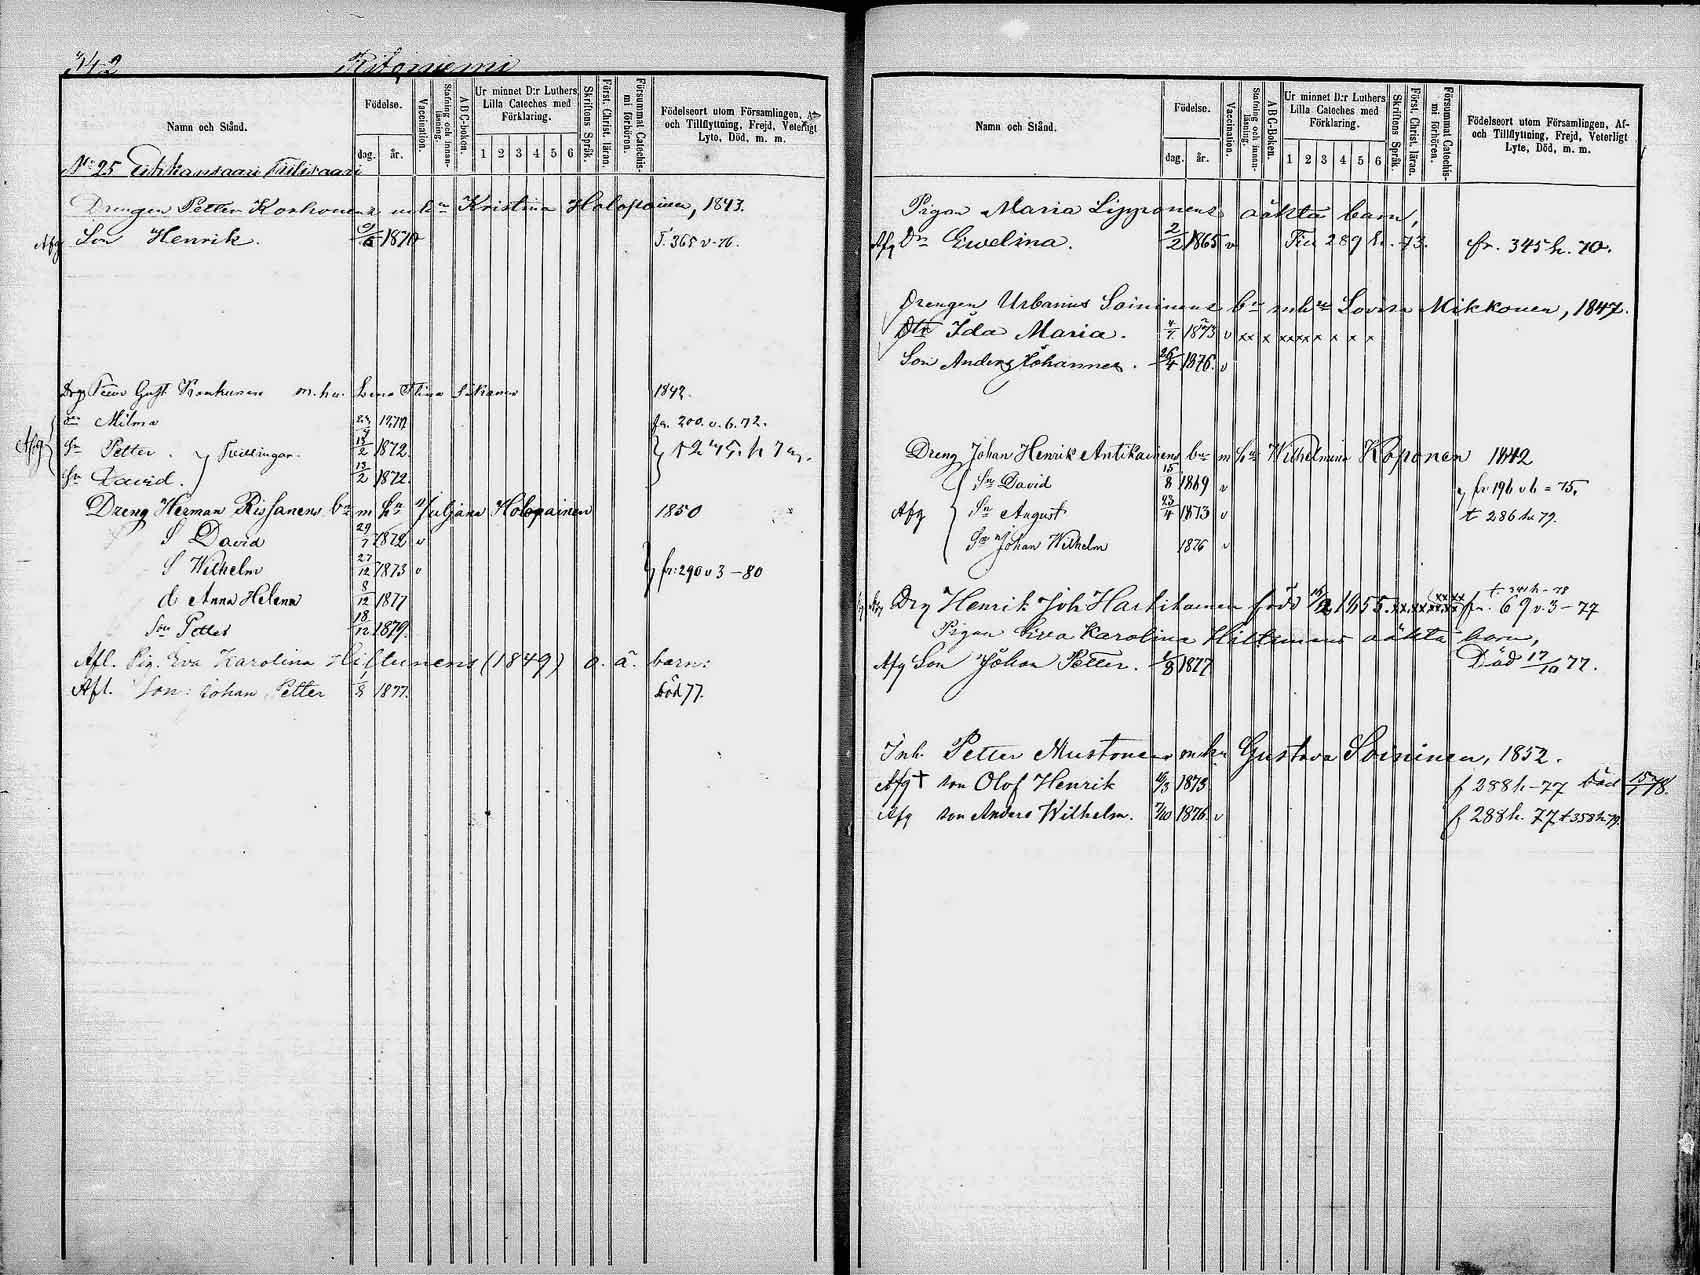 342 Ritoniemi
Namn och Stånd.
Födelse.
dag. år.
Vaccination.
Stafning och innanläsning.
A B C-boken.
Ur minnet D:r Luthers Lilla Cateches med Förklaring.
1 2 3 4 5 6
Skriftens Språk.
Först. Christ. läran.
Försummat Catechismi förhören.
Födelseort utom Församlingen, Af- och Tillflyttning, Frejd, Veterligt Lyte, Död, m. m.
No 25
Drengen Petter Korhonens m hu Kristina Holopainen, 1843.
Afg Son Henrik. 1870 T. 365 v-76.
Drg m. hu. Lena Stina 1842.
Milma 1870 fr. 200. v. 6. 72.
Afg Sn Petter. Tvillingar. 13/2 1872.
Sn David. 13/2 1872.
Dreng Herman Rissanens bn m hu Juljana Holopainen 1850
S David 29/7 1872 v
S Wilhelm 27/12 1873 v fr: 290 v 3-80
d. Anna Helena 8/12 1877
Son Petter 18/12 1879.
Afl. Pig. Eva Karolina Hiltunens (1849) o. ä. barn:
Afl. Son: Johan Petter 1/8 1877. Död 77.
Namn och Stånd.
Födelse.
dag. år.
Vaccination.
Stafning och innanläsning.
A B C-Boken.
Ur minnet D:r Luthers Lilla Cateches med Förklaring.
1 2 3 4 5 6
Skriftens Språk.
Först. Christ. läran.
Försummat Catechismi förhören.
Födelseort utom Församlingen, Af- och Tillflyttning, Frejd, Veterligt Lyte, Död, m. m.
Pigan Maria Lipponens oäkta barn,
Afg Dr Ewelina. 2/2 1865 v 289 h. 73. fr. 345 h. 70.
Drengen Urbanus Soininens bn m hu Lovisa Mikkonen, 1847.
Dtr Ida Maria. 4/7 1873 v xx x xxxx x x x x
Son Anders Johannes. 26/4 1876. v
Dreng Johan Henrik Antikainens bn m hu Wilhelmina Koponen 1842
Sn David 15/8 1869 v fr 196 v 6 = 75,
Afg Sn August 23/4 1873 v t 286 hr 79.
Sn Johan Wilhelm 1876 v
Drg Henrik Joh Hartikainen född 1855. xx xx xx xx fr. 69 v. 3-77
Pigan Eva Karolina Hiltunens oäkta barn,
Afg Son Johan Petter. 1/8 1877 Död 17/10 77.
Inh. Petter Mustonens m hu Gustava Soininen, 1852.
Afg † son Olof Henrik 1873 f 288 h-77 Död 15/1 78.
Afg son Anders Wilhelm. 7/10 1876. v f 288 h. 77 t 358 h 79.